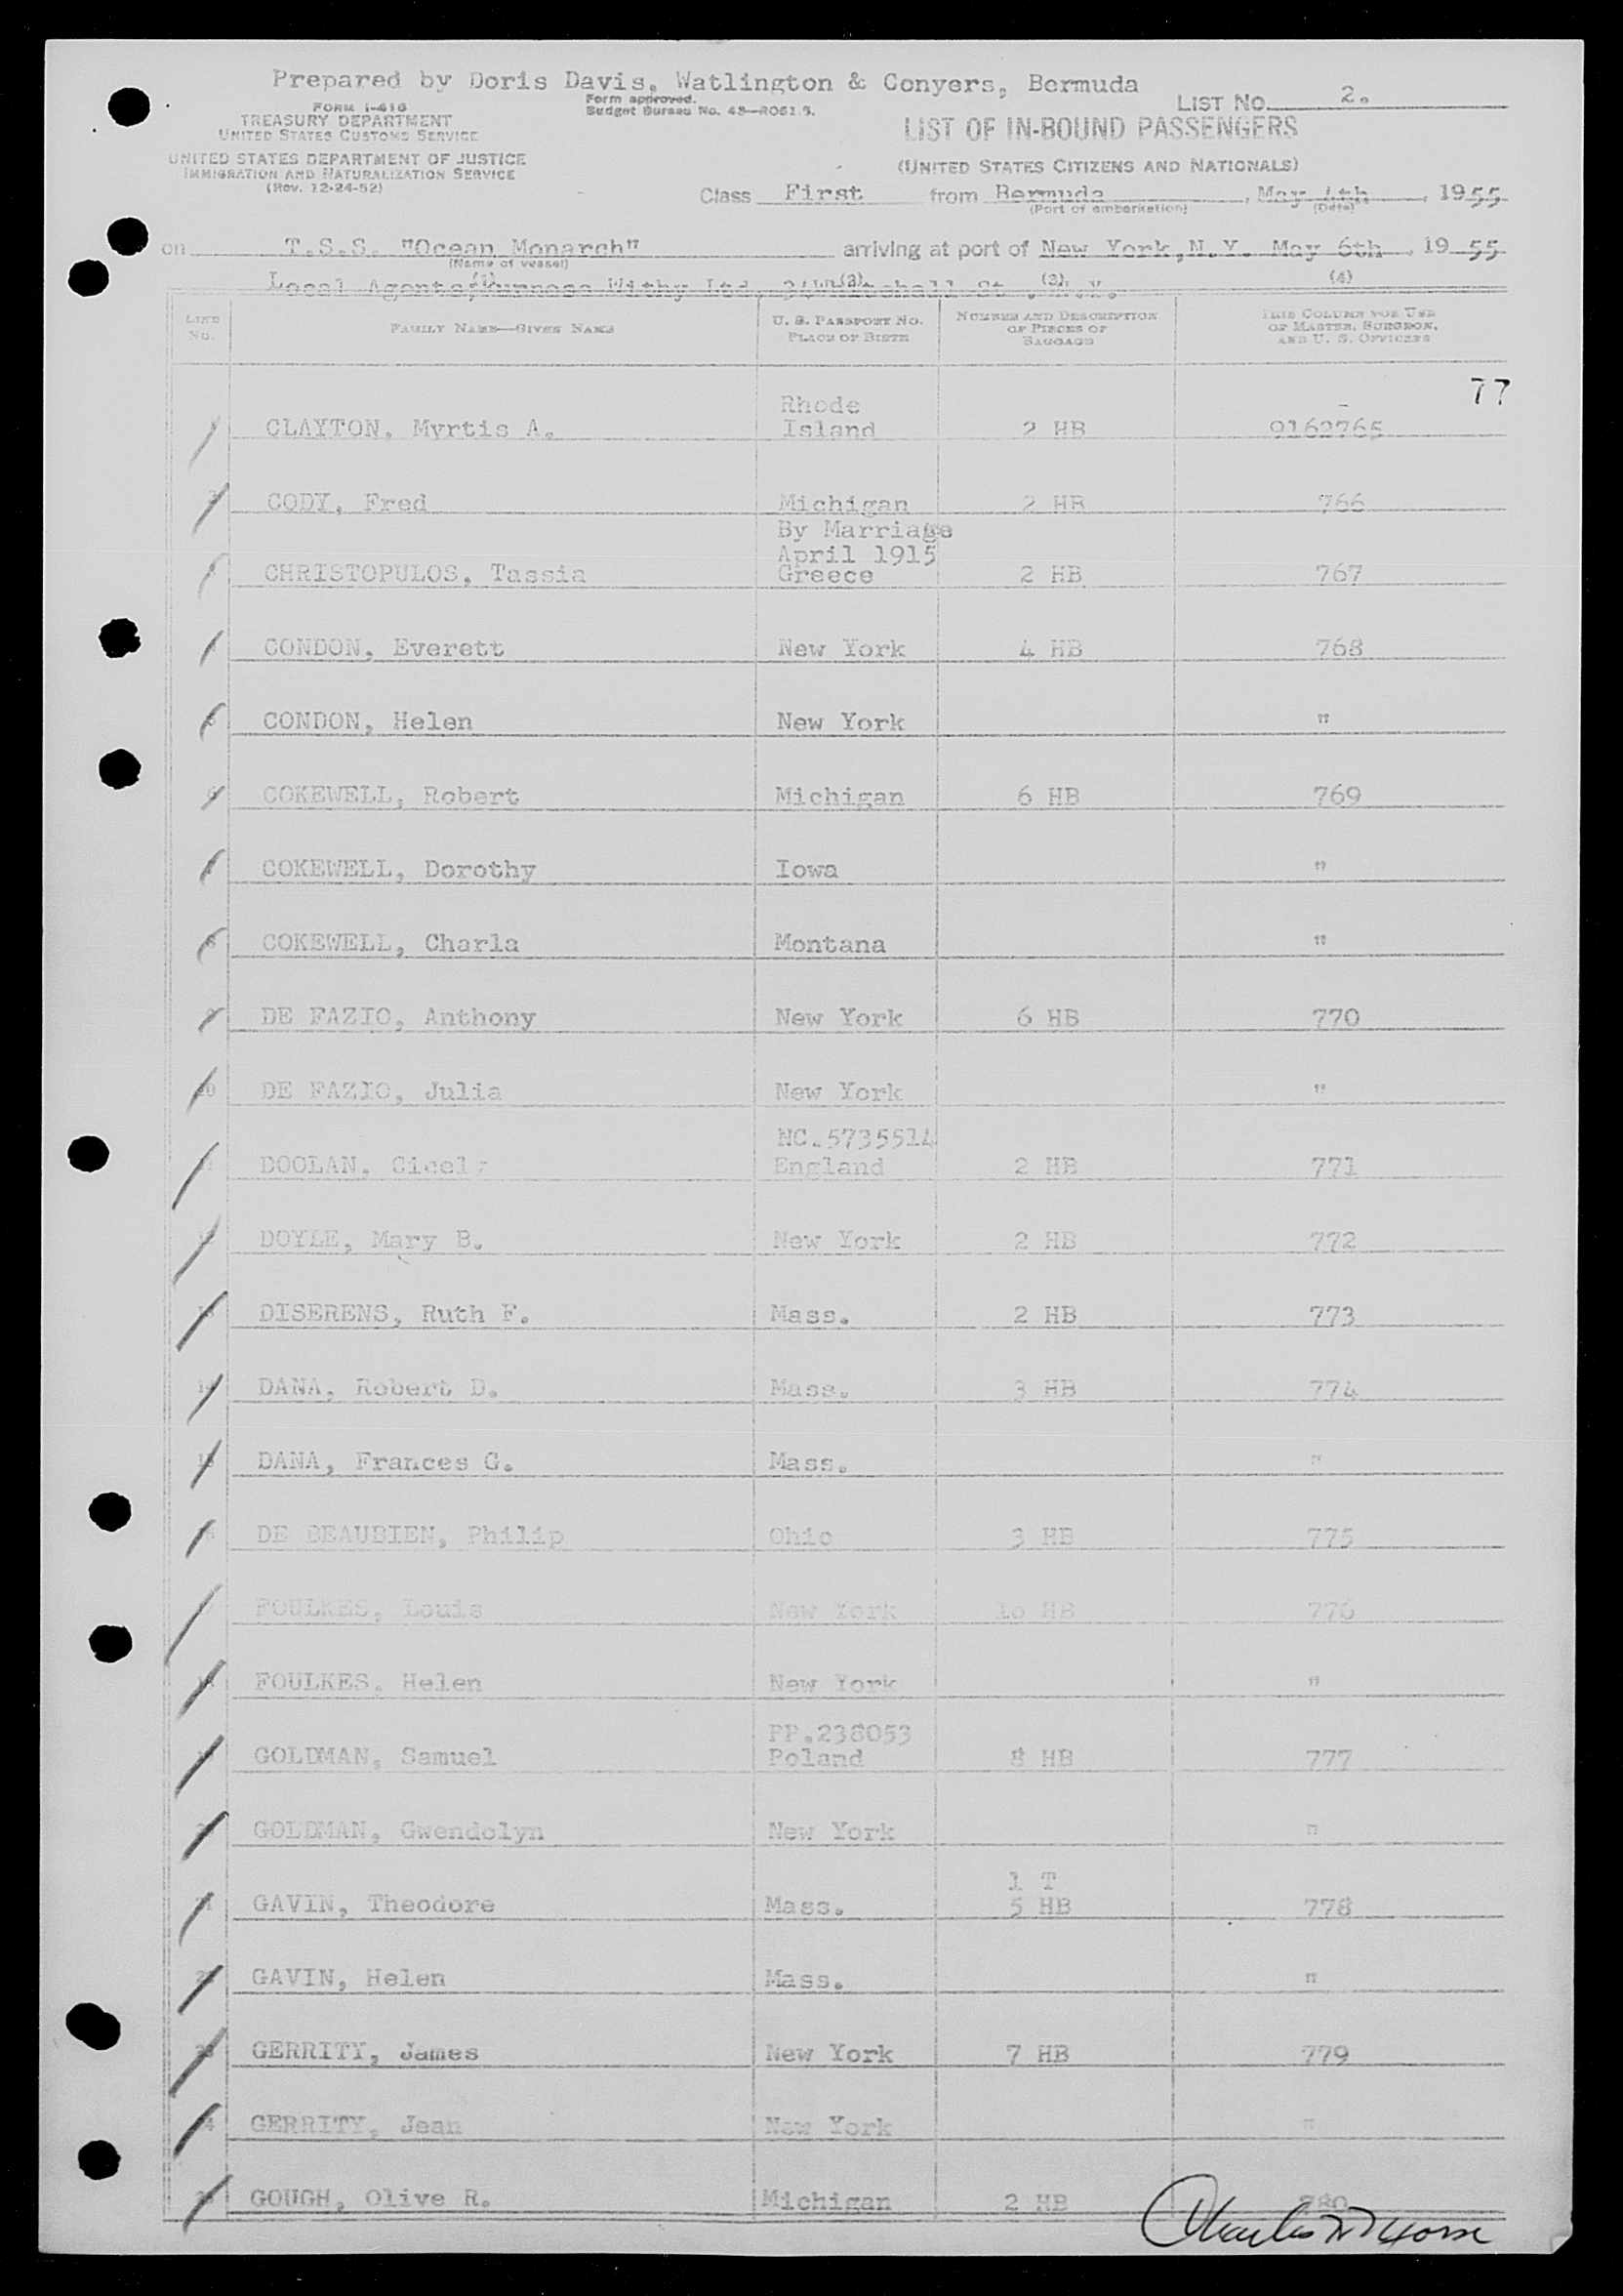 Prepared by Doris Davis, Watlington & Conyers, Bermuda
FORM I-416
TREASURY DEPARTMENT
UNITED STATES CUSTOMS SERVICE
UNITED STATES DEPARTMENT OF JUSTICE
IMMIGRATION AND NATURALIZATION SERVICE
(Rev. 12-24-52)
Form approved.
Budget Bureau No. 43-R061.5.
LIST NO. 2.
LIST OF IN-BOUND PASSENGERS
(UNITED STATES CITIZENS AND NATIONALS)
Class First from Bermuda, May 4th, 1955
(Port of embarkation) (Date)
on T.S.S. "Ocean Monarch" arriving at port of New York, N.Y. May 6th, 1955
(Name of vessel)
Local Agents, Furness Withy Ltd. 34 Whitehall St., N.Y.
(1) (2) (3) (4)
LINE NO. FAMILY NAME—GIVEN NAME U. S. PASSPORT NO. PLACE OF BIRTH NUMBER AND DESCRIPTION OF PIECES OF BAGGAGE THIS COLUMN FOR USE OF MASTER, SURGEON, AND U. S. OFFICERS
77
CLAYTON, Myrtis A. Rhode Island 2 HB 9162765
CODY, Fred Michigan 2 HB 766
By Marriage
April 1915
CHRISTOPULOS, Tassia Greece 2 HB 767
CONDON, Everett New York 4 HB 768
5 CONDON, Helen New York "
COKEWELL, Robert Michigan 6 HB 769
COKEWELL, Dorothy Iowa "
8 COKEWELL, Charla Montana "
9 DE FAZIO, Anthony New York 6 HB 770
10 DE FAZIO, Julia New York "
NC.5735514
DOOLAN, England 2 HB 771
DOYLE, Mary B. New York 2 HB 772
13 DISERENS, Ruth F. Mass. 2 HB 773
14 DANA, Robert D. Mass. 3 HB 774
15 DANA, Frances G. Mass. "
DE BEAUBIEN, Philip Ohio 3 HB 775
FOULKES, Louis New York 10 HB 776
18 FOULKES, Helen New York "
PP.238053
GOLDMAN, Samuel Poland 8 HB 777
GOLDMAN, Gwendolyn New York "
1 T
21 GAVIN, Theodore Mass. 5 HB 778
22 GAVIN, Helen Mass. "
23 GERRITY, James New York 7 HB 779
24 GERRITY, Jean New York "
25 GOUGH, Olive R. Michigan 2 HB 780